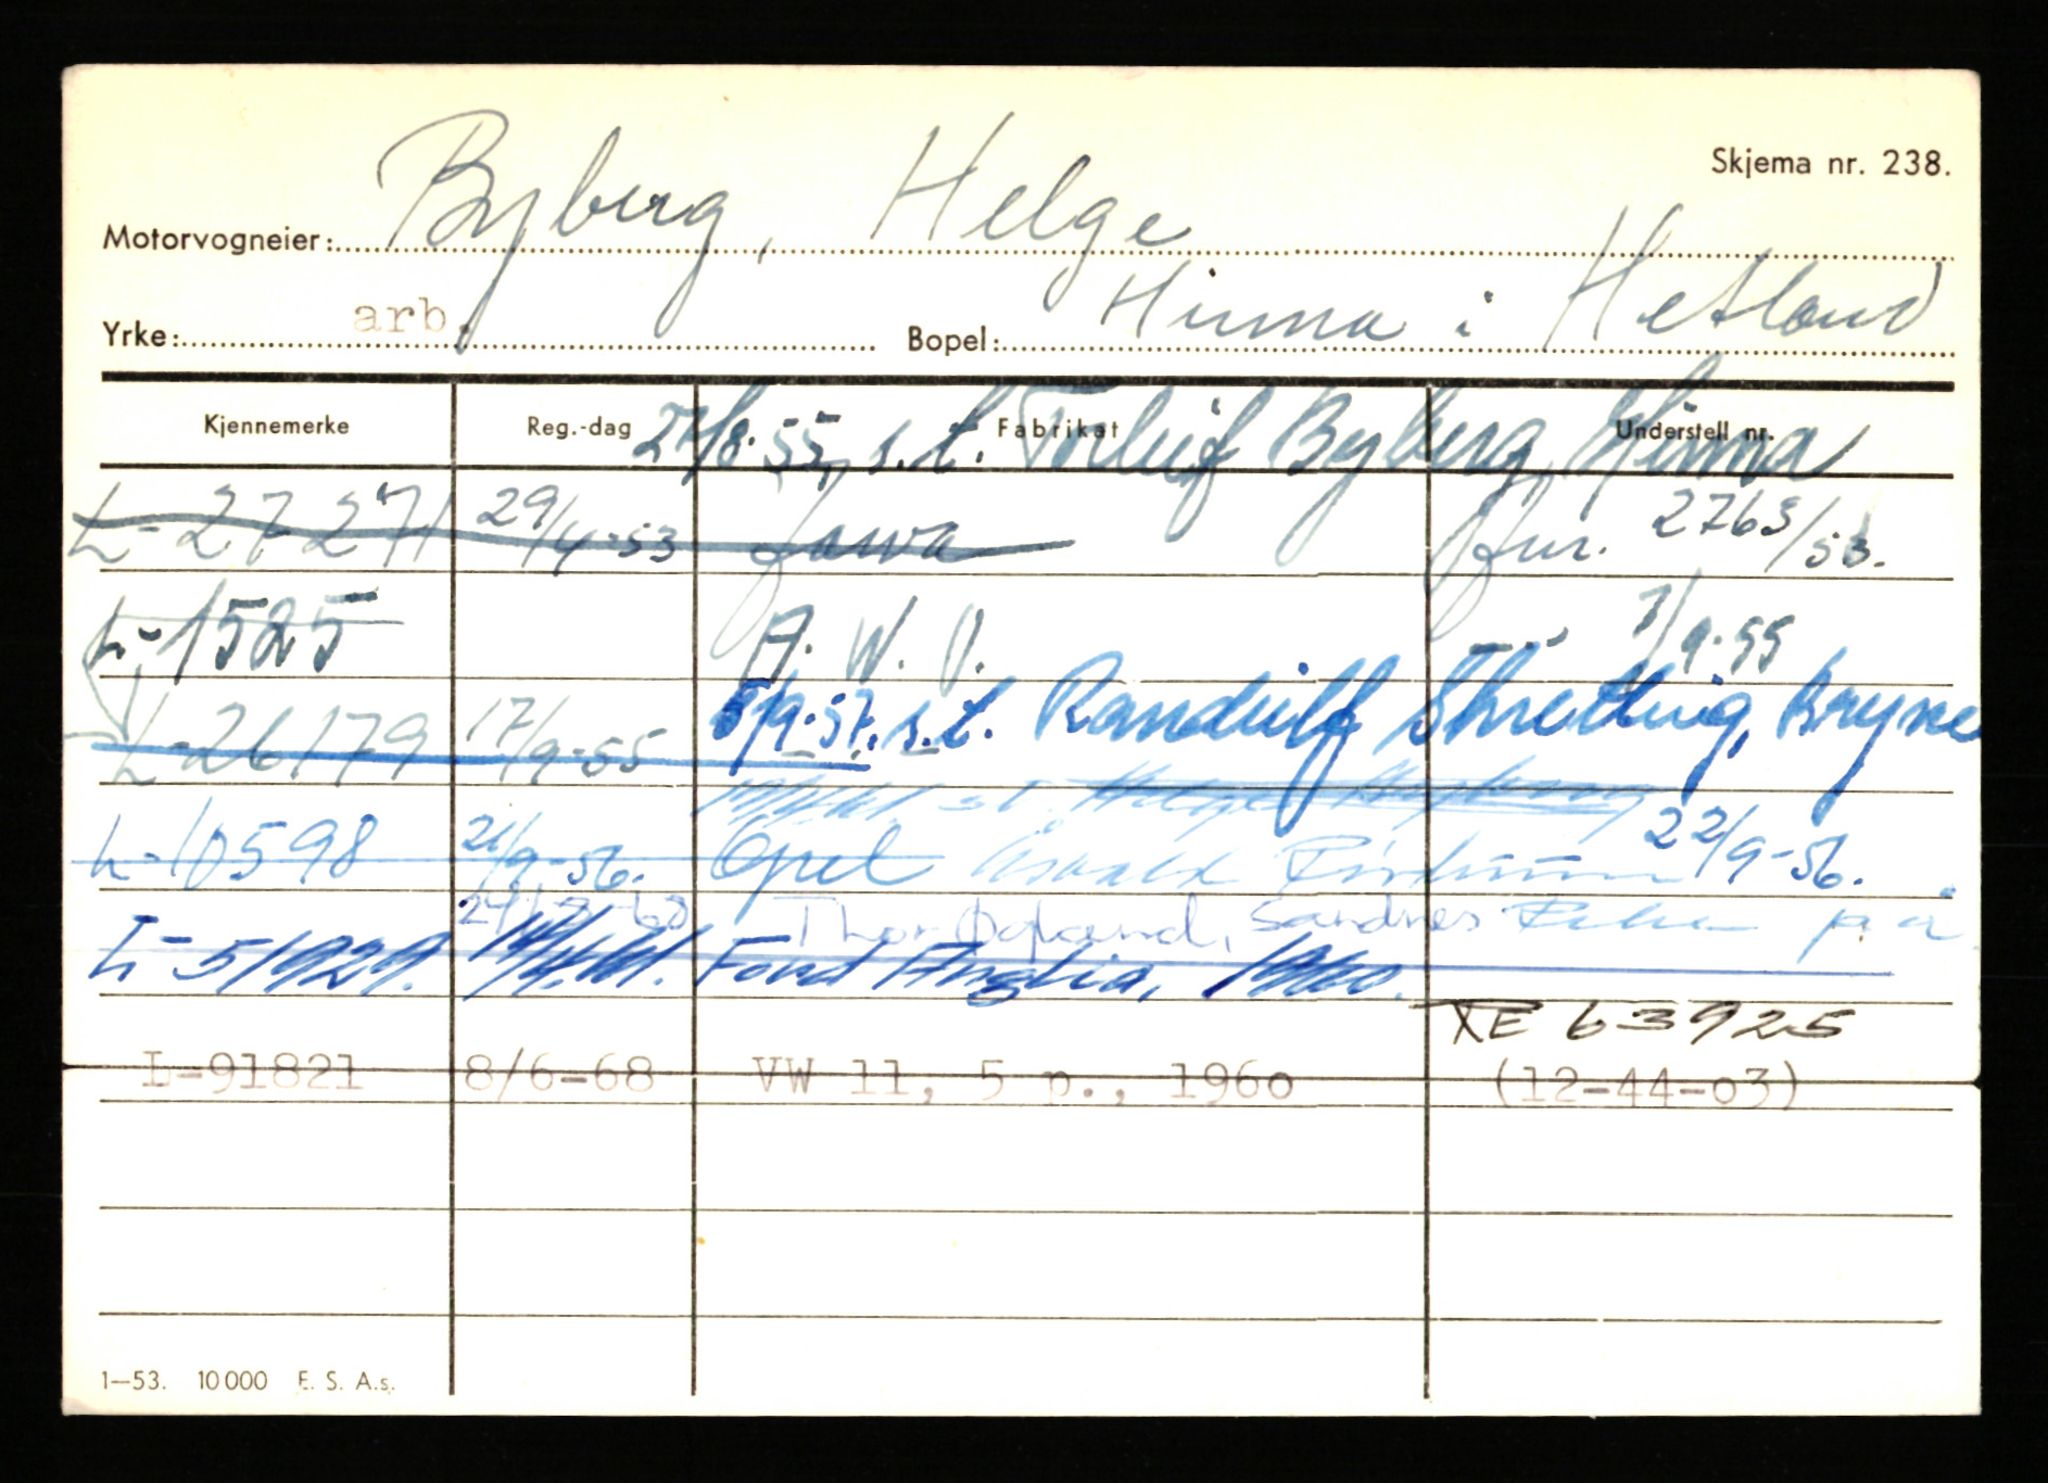 Skjema nr. 238.
Motorvogneier: Byberg, Helge
Yrke: arb. Bopel: Hinna i Hetland
Kjennemerke Reg.-dag Fabrikat Understell nr.
27/8-55, s.t. Torleif Byberg, Hinna
L-27271 29/4-53 Jawa Jnr. 2763/53.
L-1525 A. W. O. 7/9-55
5/9-57. s.t. Randulf Skretting, Bryne
L-26179 17/9-55
L-10598 21/9-56. Opel 22/9-56.
Thor Øgland, Sandnes
L-51929. 14/4.61. Ford Anglia, 1960.
XE 63925
L-91821 8/6-68 VW 11, 5 p., 1960 (12-44-03)
1—53. 10 000 E. S. A.s.